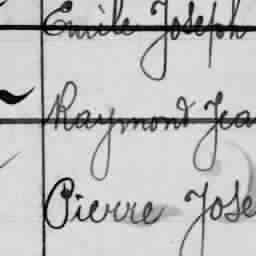 Emile Joseph
Raymond Jea
Pierre Jose